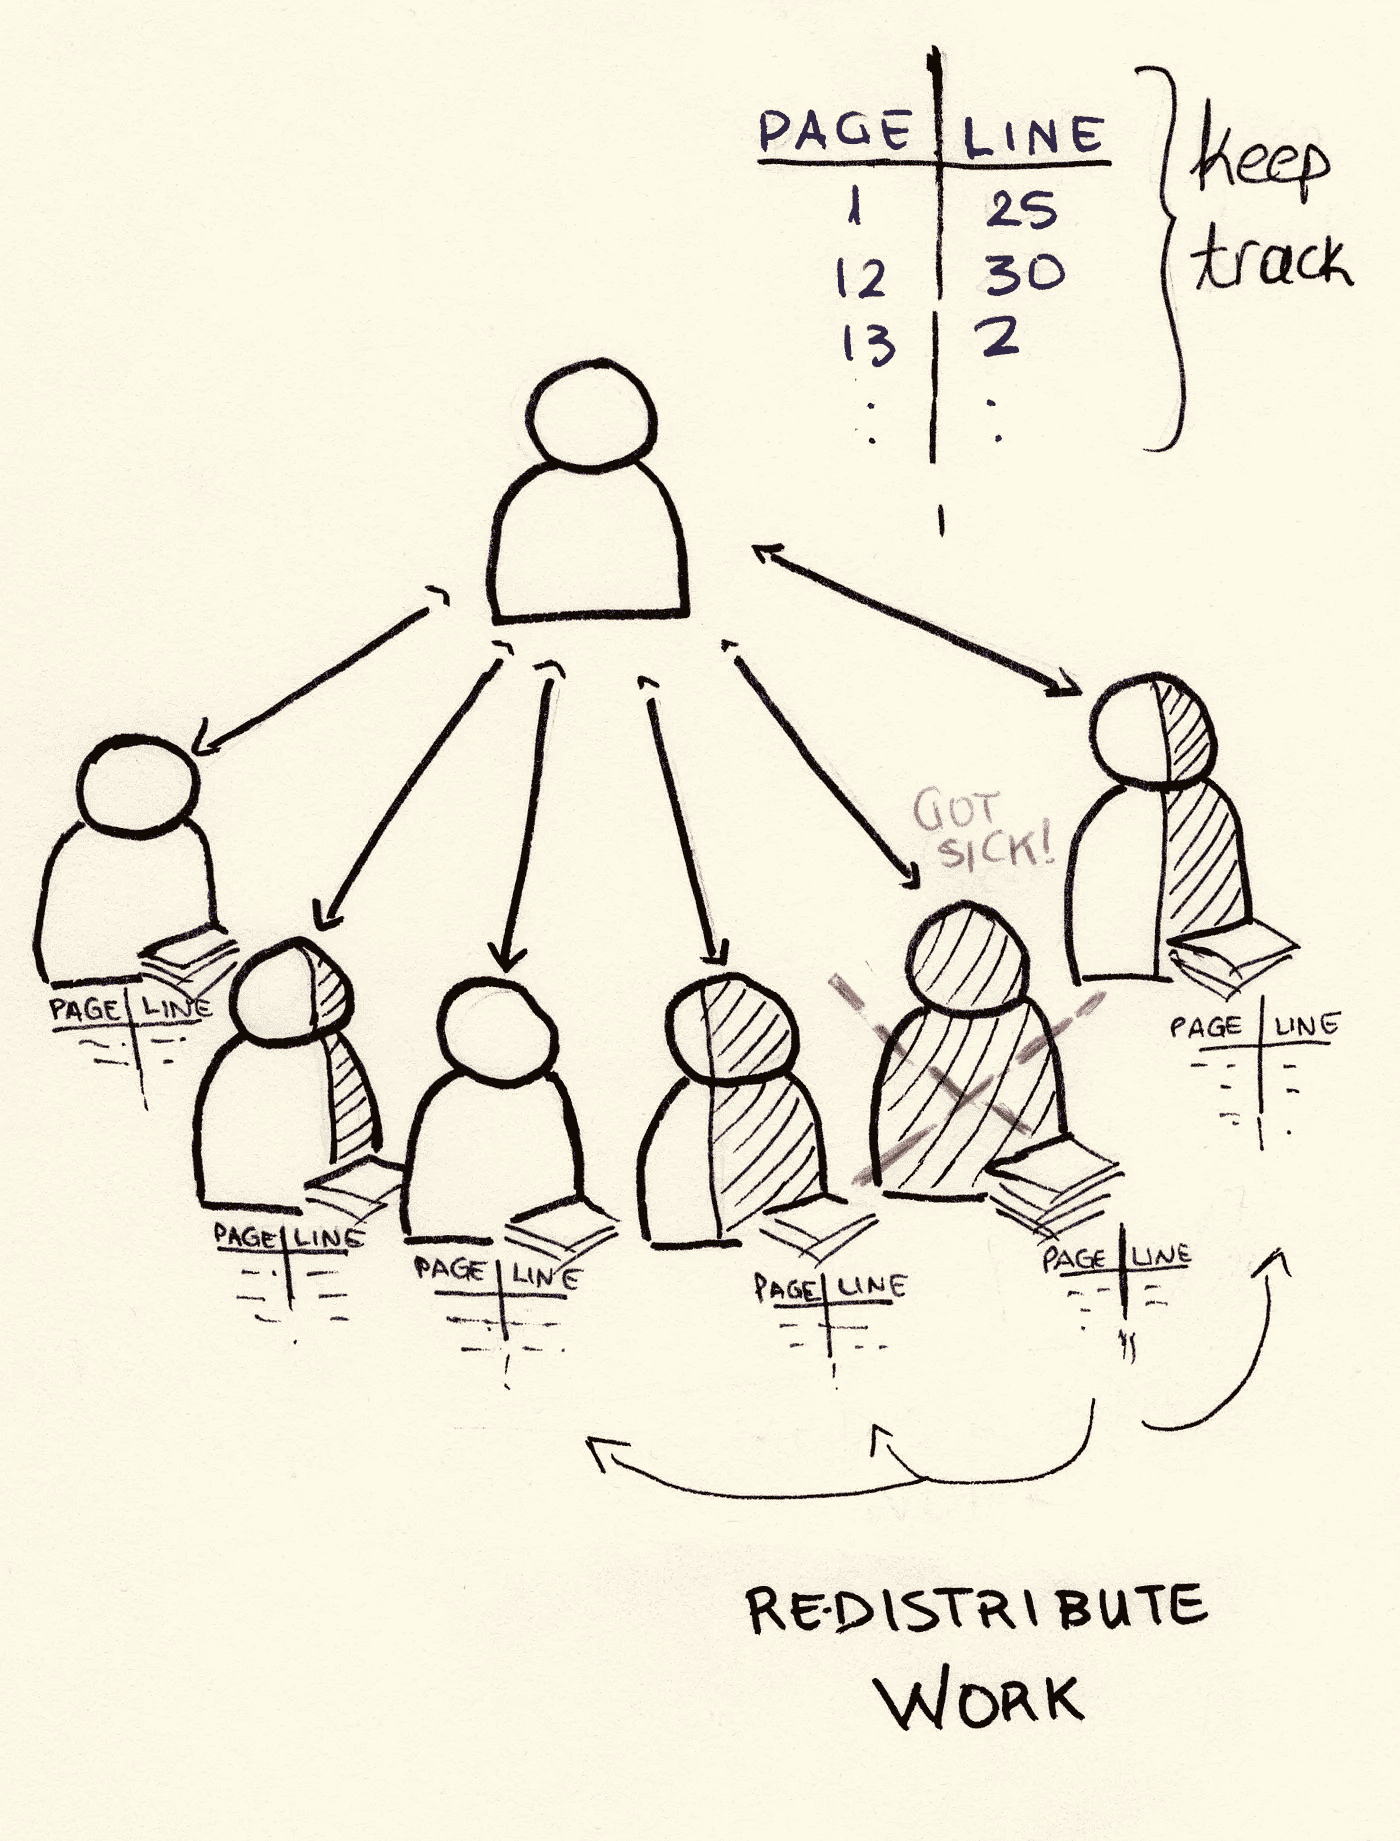 PAGE LINE
1 25
12 30
13 2
: :
keep
track
GOT
SICK!
PAGE LINE
PAGE LINE
PAGE LINE
PAGE LINE
PAGE LINE
PAGE LINE
RE-DISTRIBUTE
WORK